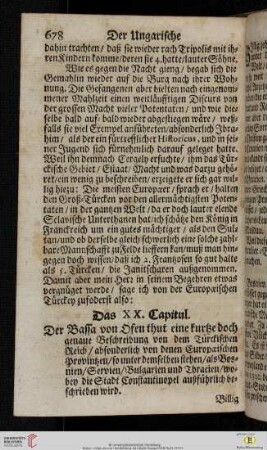 678 Der Ungarische
dahin trachten / daß sie wieder nach Tripolis mit ih-
ren Kindern komme / deren sie 4. hatte / lauter Söhne.
Wie es gegen die Nacht gieng / begab sich die
Gemahlin wieder auf die Burg nach ihrer Woh-
nung. Die Gefangenen aber hielten nach eingenom-
mener Mahlzeit einen weitläufftigen Discurs von
der grossen Macht vieler Potentaten / und wie die-
selbe bald auf / bald wieder abgestiegen wäre / weß-
falls sie viel Exempel anführeten / absonderlich
him / als der ein fürtrefflicher Historicus, und in sei-
ner Jugend sich fürnehmlich darauf geleget hatte.
Weil ihn demnach Cergely ersuchte / ihm das Tür-
ckische Gebiet / Estaat / Macht und was dazu gehö-
ret / ein wenig zu beschreiben / erzeigete er sich gar wil-
lig hiezu: Die meisten Europæer / sprach er / halten
den Groß-Türcken vor den allermächtigsten Poten-
taten / in der gantzen Welt / da er doch lauter elende
Sclavische Unterthanen hat / ich schätze den König in
Franckreich um ein gutes mächtiger / als den Sul-
tan / und ob derselbe gleich schwerlich eine solche zahl-
bare Mannschafft zu Felde liefern kan / muß man hin-
gegen doch wissen / daß ich 2. Frantzosen so gut halte
als 5. Türcken / die Janitscharen außgenommen.
Damit aber mein Herr in seinem Begehren etwas
vergnüget werde / sage ich von der Europæischen
Türckey zuförderst also:
Das XX. Capitul.
Der Bassa von Ofen thut eine kurtze doch
genaue Beschreibung von dem Türckischen
Reich / absonderlich von denen Europæischen
Provintzen / so unter demselben stehen / als Bos-
nien / Servien / Bulgarien und Thracien / wo-
bey die Stadt Constantinopel außführlich be-
schrieben wird.
Billig